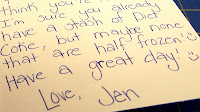 think you're
I'm sure you already
have a stash of Diet
Coke, but maybe none
that are half frozen! :)
Have a great day! :)
Love, Jen